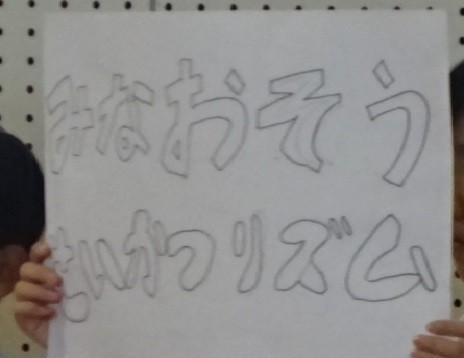 みなおそう
せいかつリズム